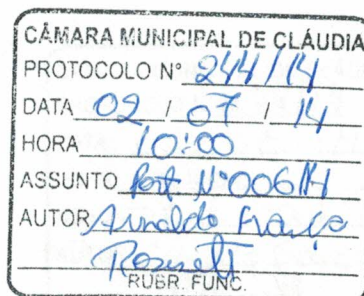 CÂMARA MUNICIPAL DE CLÁUDIA
PROTOCOLO N° 244/14
DATA 02 / 07 / 14
HORA 10:00
ASSUNTO Port. N°006/14
AUTOR Arnaldo França
RUBR. FUNC.